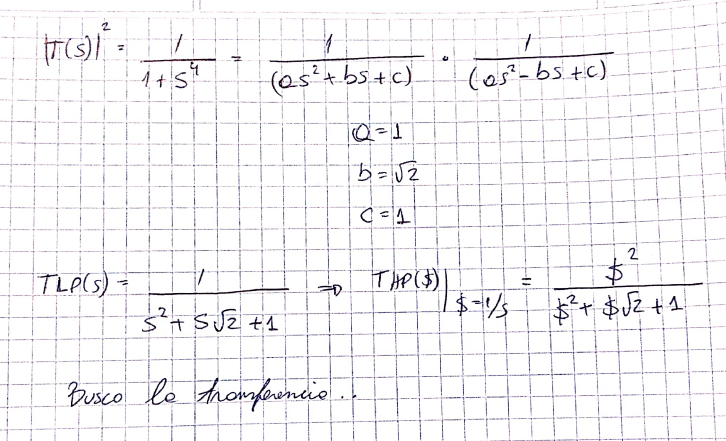 |T(s)|² = 1/(1+s⁴) = 1/(as²+bs+c) · 1/(as²-bs+c)
a=1
b=√2
c=1
TLP(s) = 1/(s²+s√2+1) ⇒ THP($)|$=1/s = $²/($²+$√2+1)
Busco la transferencia..